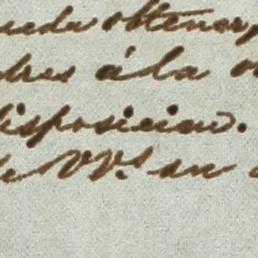 ueda obtener,
dres á la o
disposicion.
de VV.s su